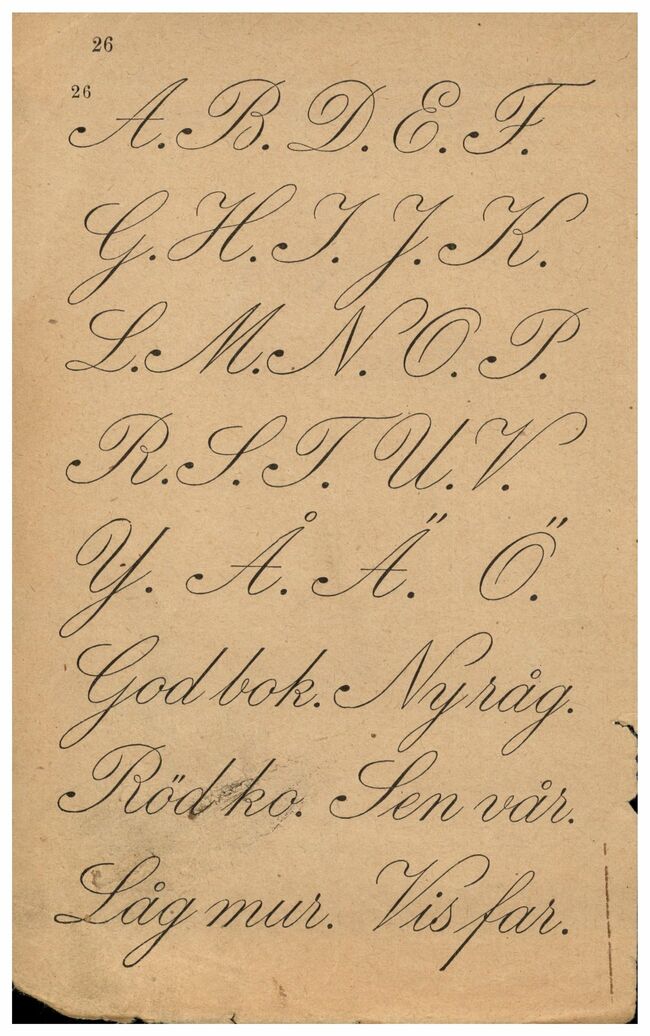 26
26 A. B. D. E. F.
G. H. I. J. K.
L. M. N. O. P.
R. S. T. U. V.
Y. Å. Ä. Ö.
God bok. Ny råg.
Röd ko. Sen vår.
Låg mur. Vis far.